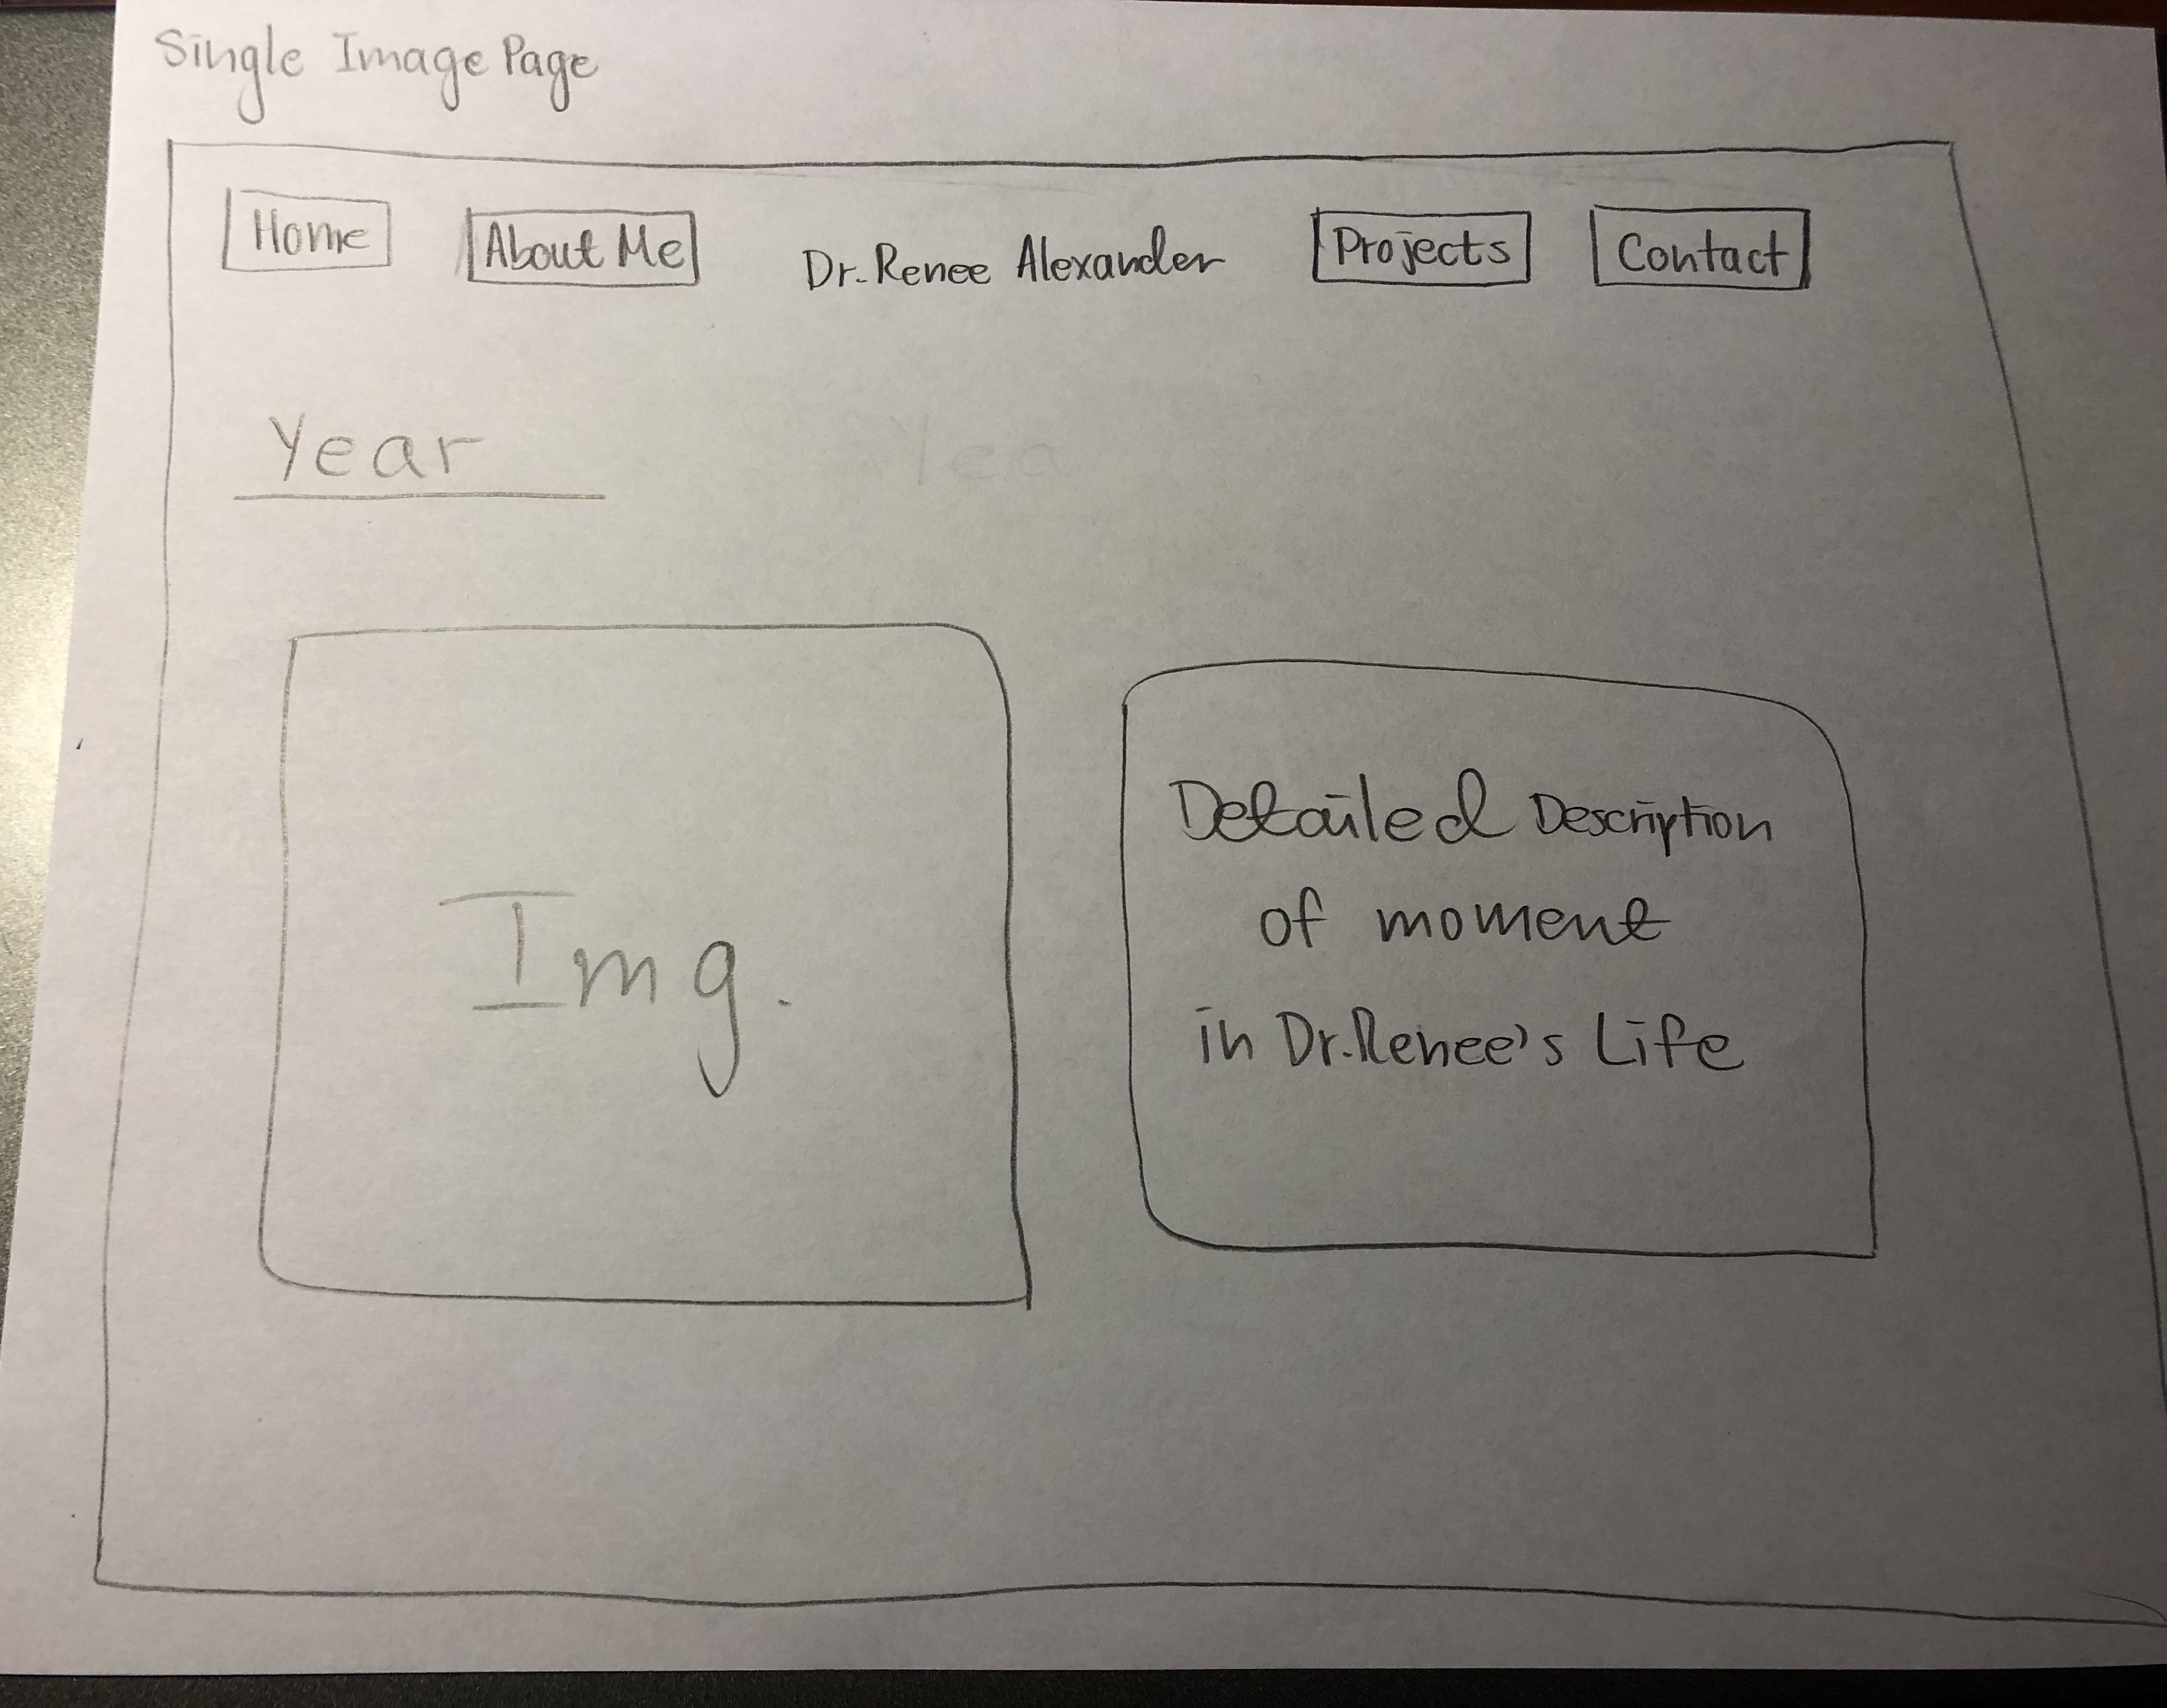 Single Image Page
Home About Me Dr. Renee Alexander Projects Contact
Year Yea
Img.
Detailed Description
of moment
in Dr. Renee's Life